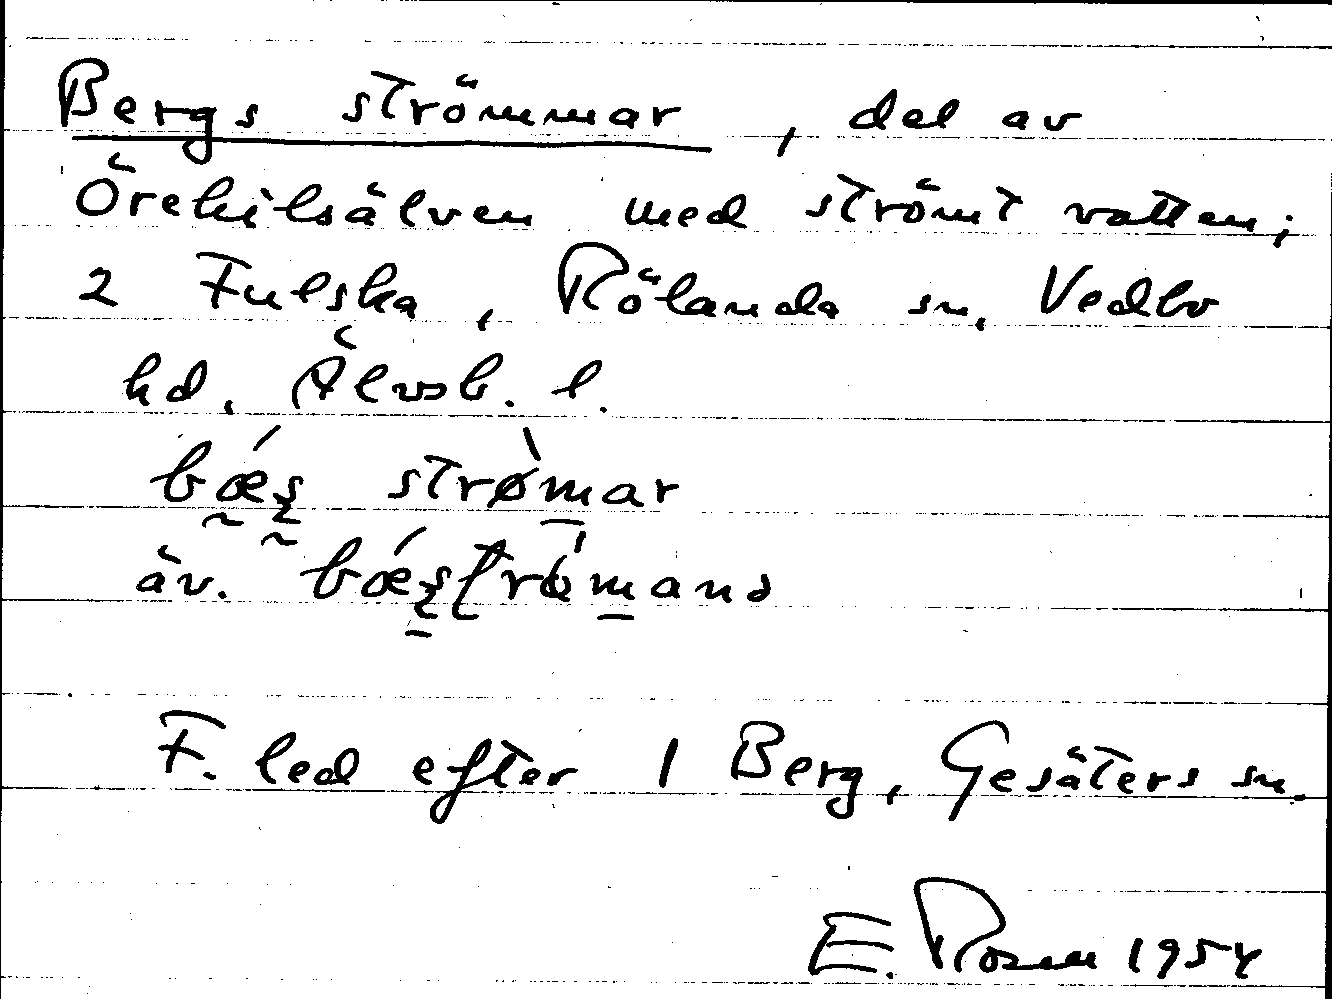 Bergs strömmar, del av
Örekilsälven med strömt vatten;
2 Fulska, Rölanda sn, Vedbo
hd, Älvsb. l.
bǽs strø̀mar
äv. bǽstrø̀mana
F. led efter 1 Berg, Gesäters sn.
E. Rosen 1954